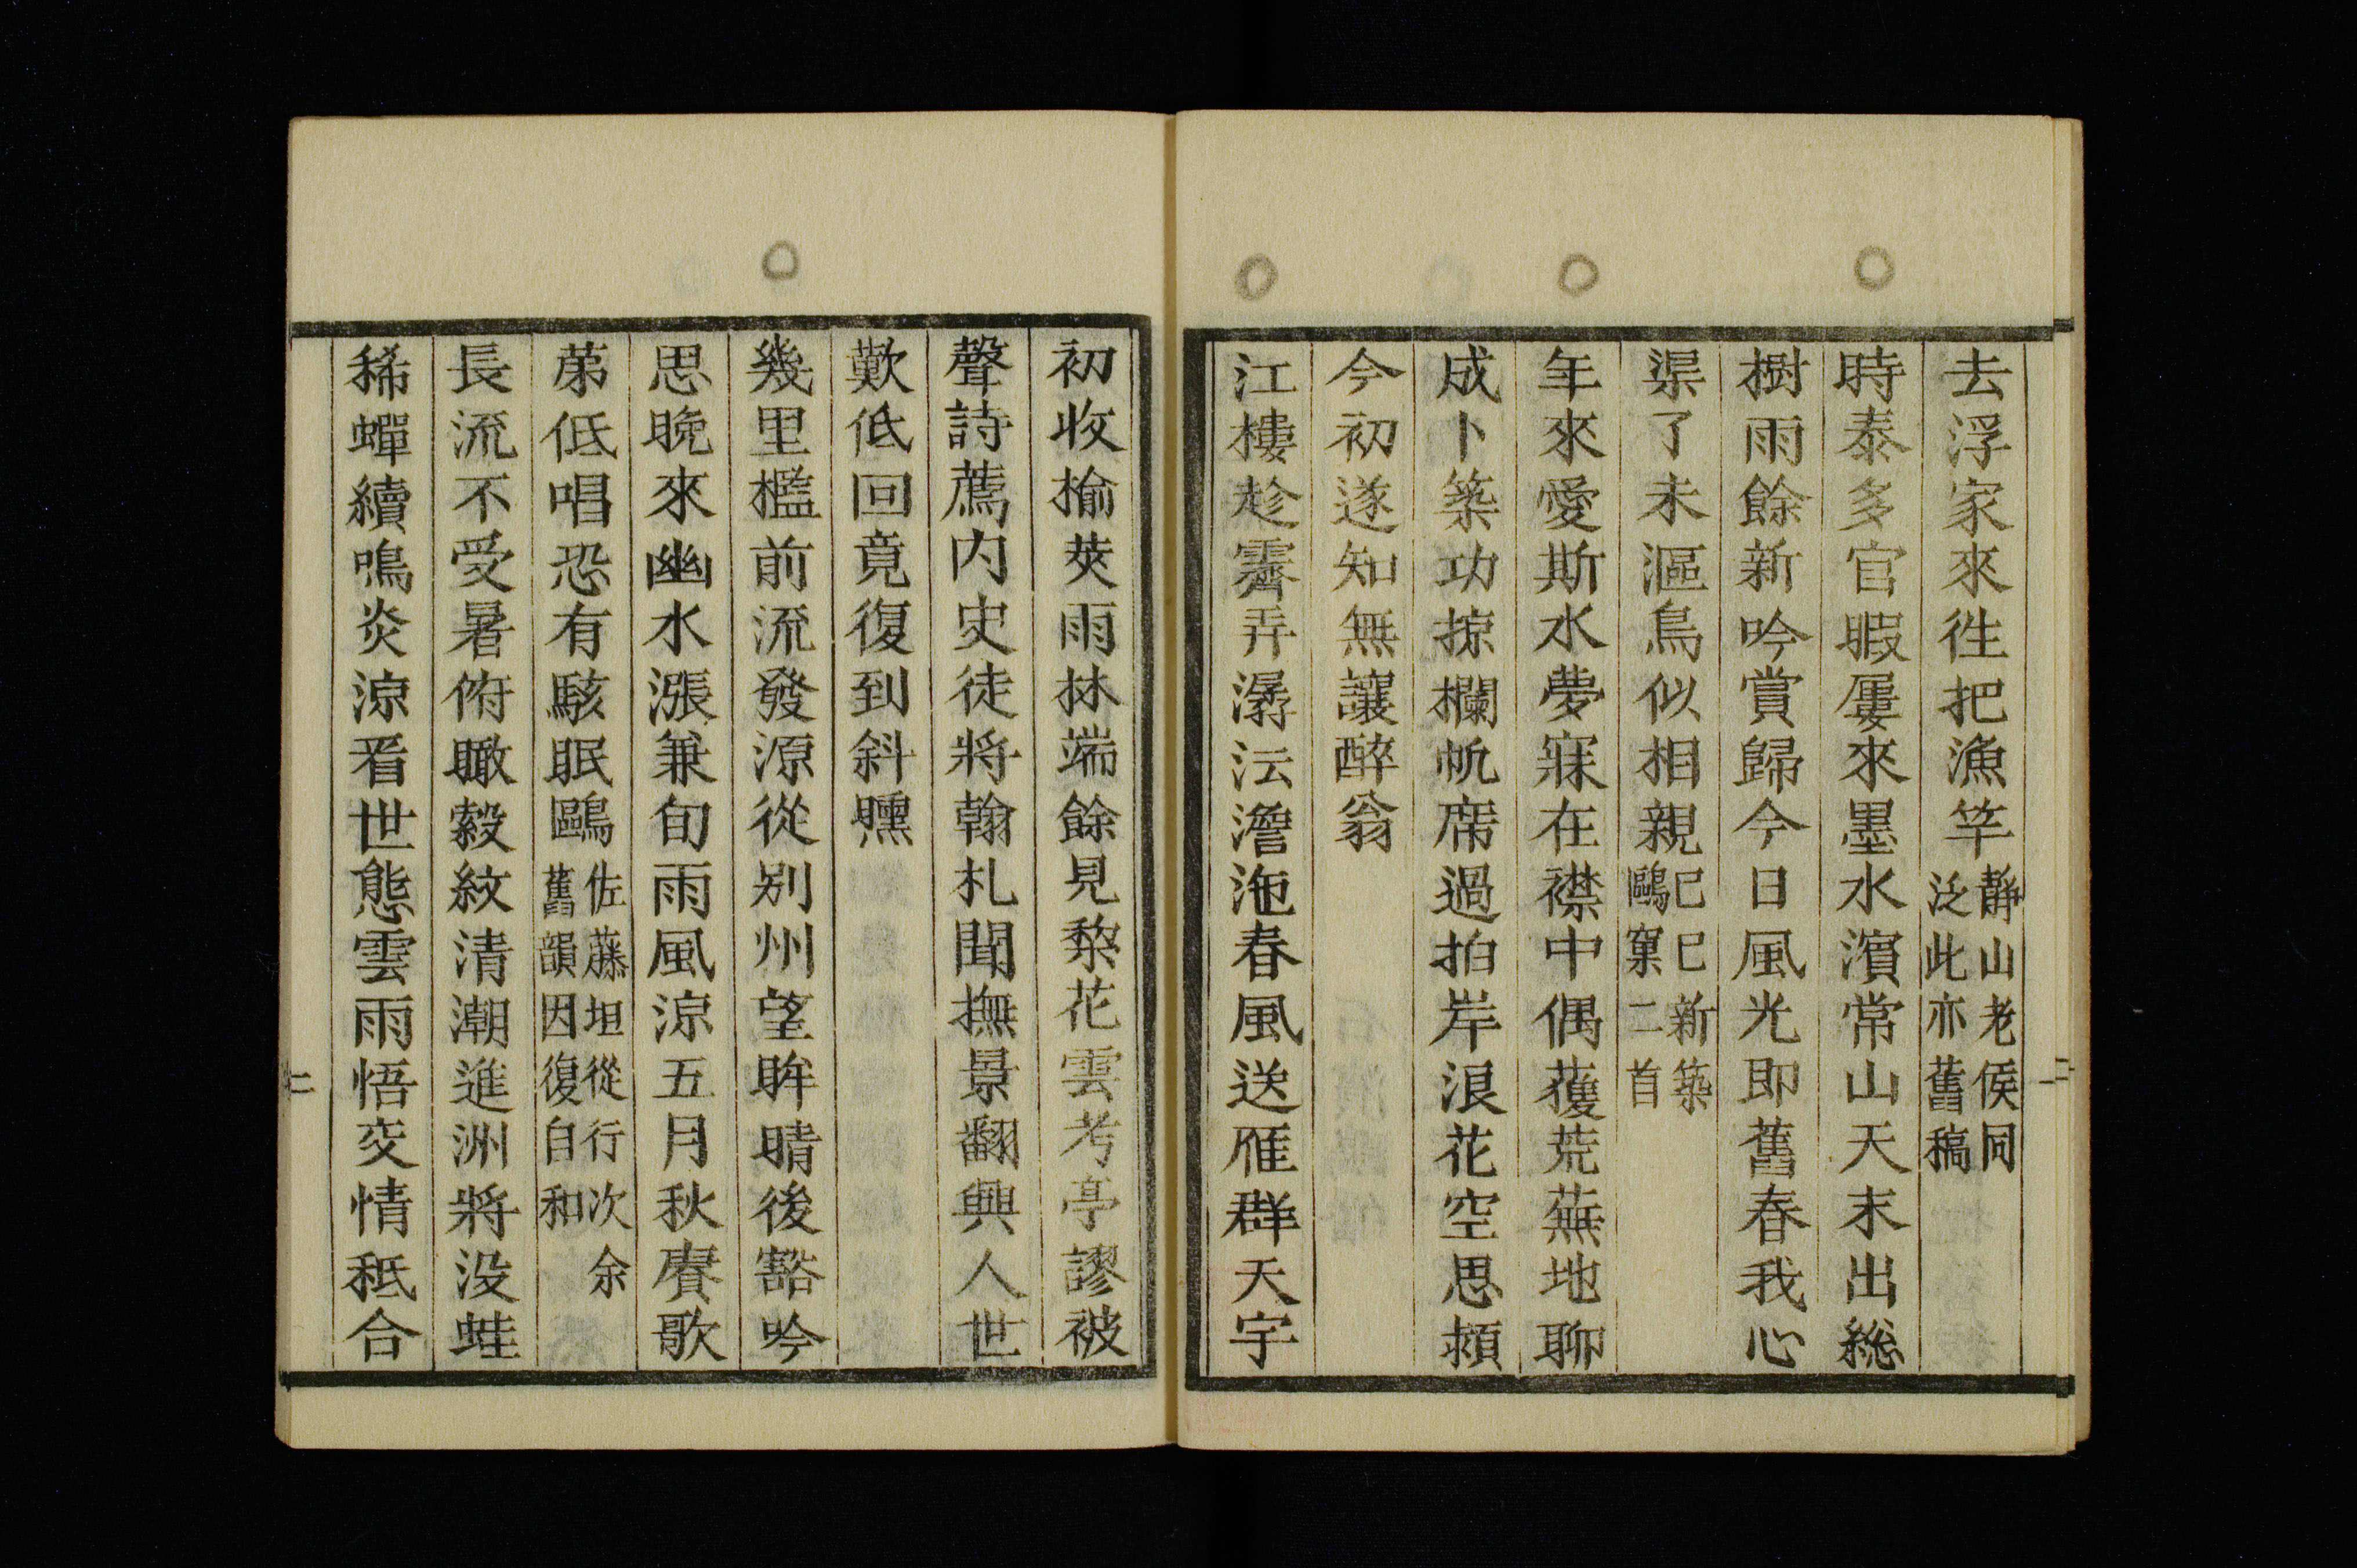 去浮家來徃把漁竿靜山老侯同泛此亦舊稿
時泰多官暇屢來墨水濱常山天末出総
樹雨餘新吟賞歸今日風光即舊春我心
渠了未漚鳥似相親己巳新築鷗窠二首
年來愛斯水夢寐在襟中偶蒦荒蕪地聊
成卜築功掠欄帆席過拍岸浪花空思頼
今初遂知無讓醉翁
江樓趁霽弄潺沄澹沲春風送雁群天宇
初收揄莢雨林端餘見棃花雲考亭謬被
聲詩薦内史徒將翰札聞撫景翻興人世
歎低回竟復到斜曛
幾里檻前流發源從別州望眸晴後豁吟
思晩來幽水漲兼旬雨風涼五月秋賡歌
苐低唱恐有駭眠鷗佐藤坦從行次余舊韻因復自和
長流不受暑俯瞰縠紋清潮進洲將没蛙
稀蟬續鳴炎涼看世態雲雨悟交情秪合
二